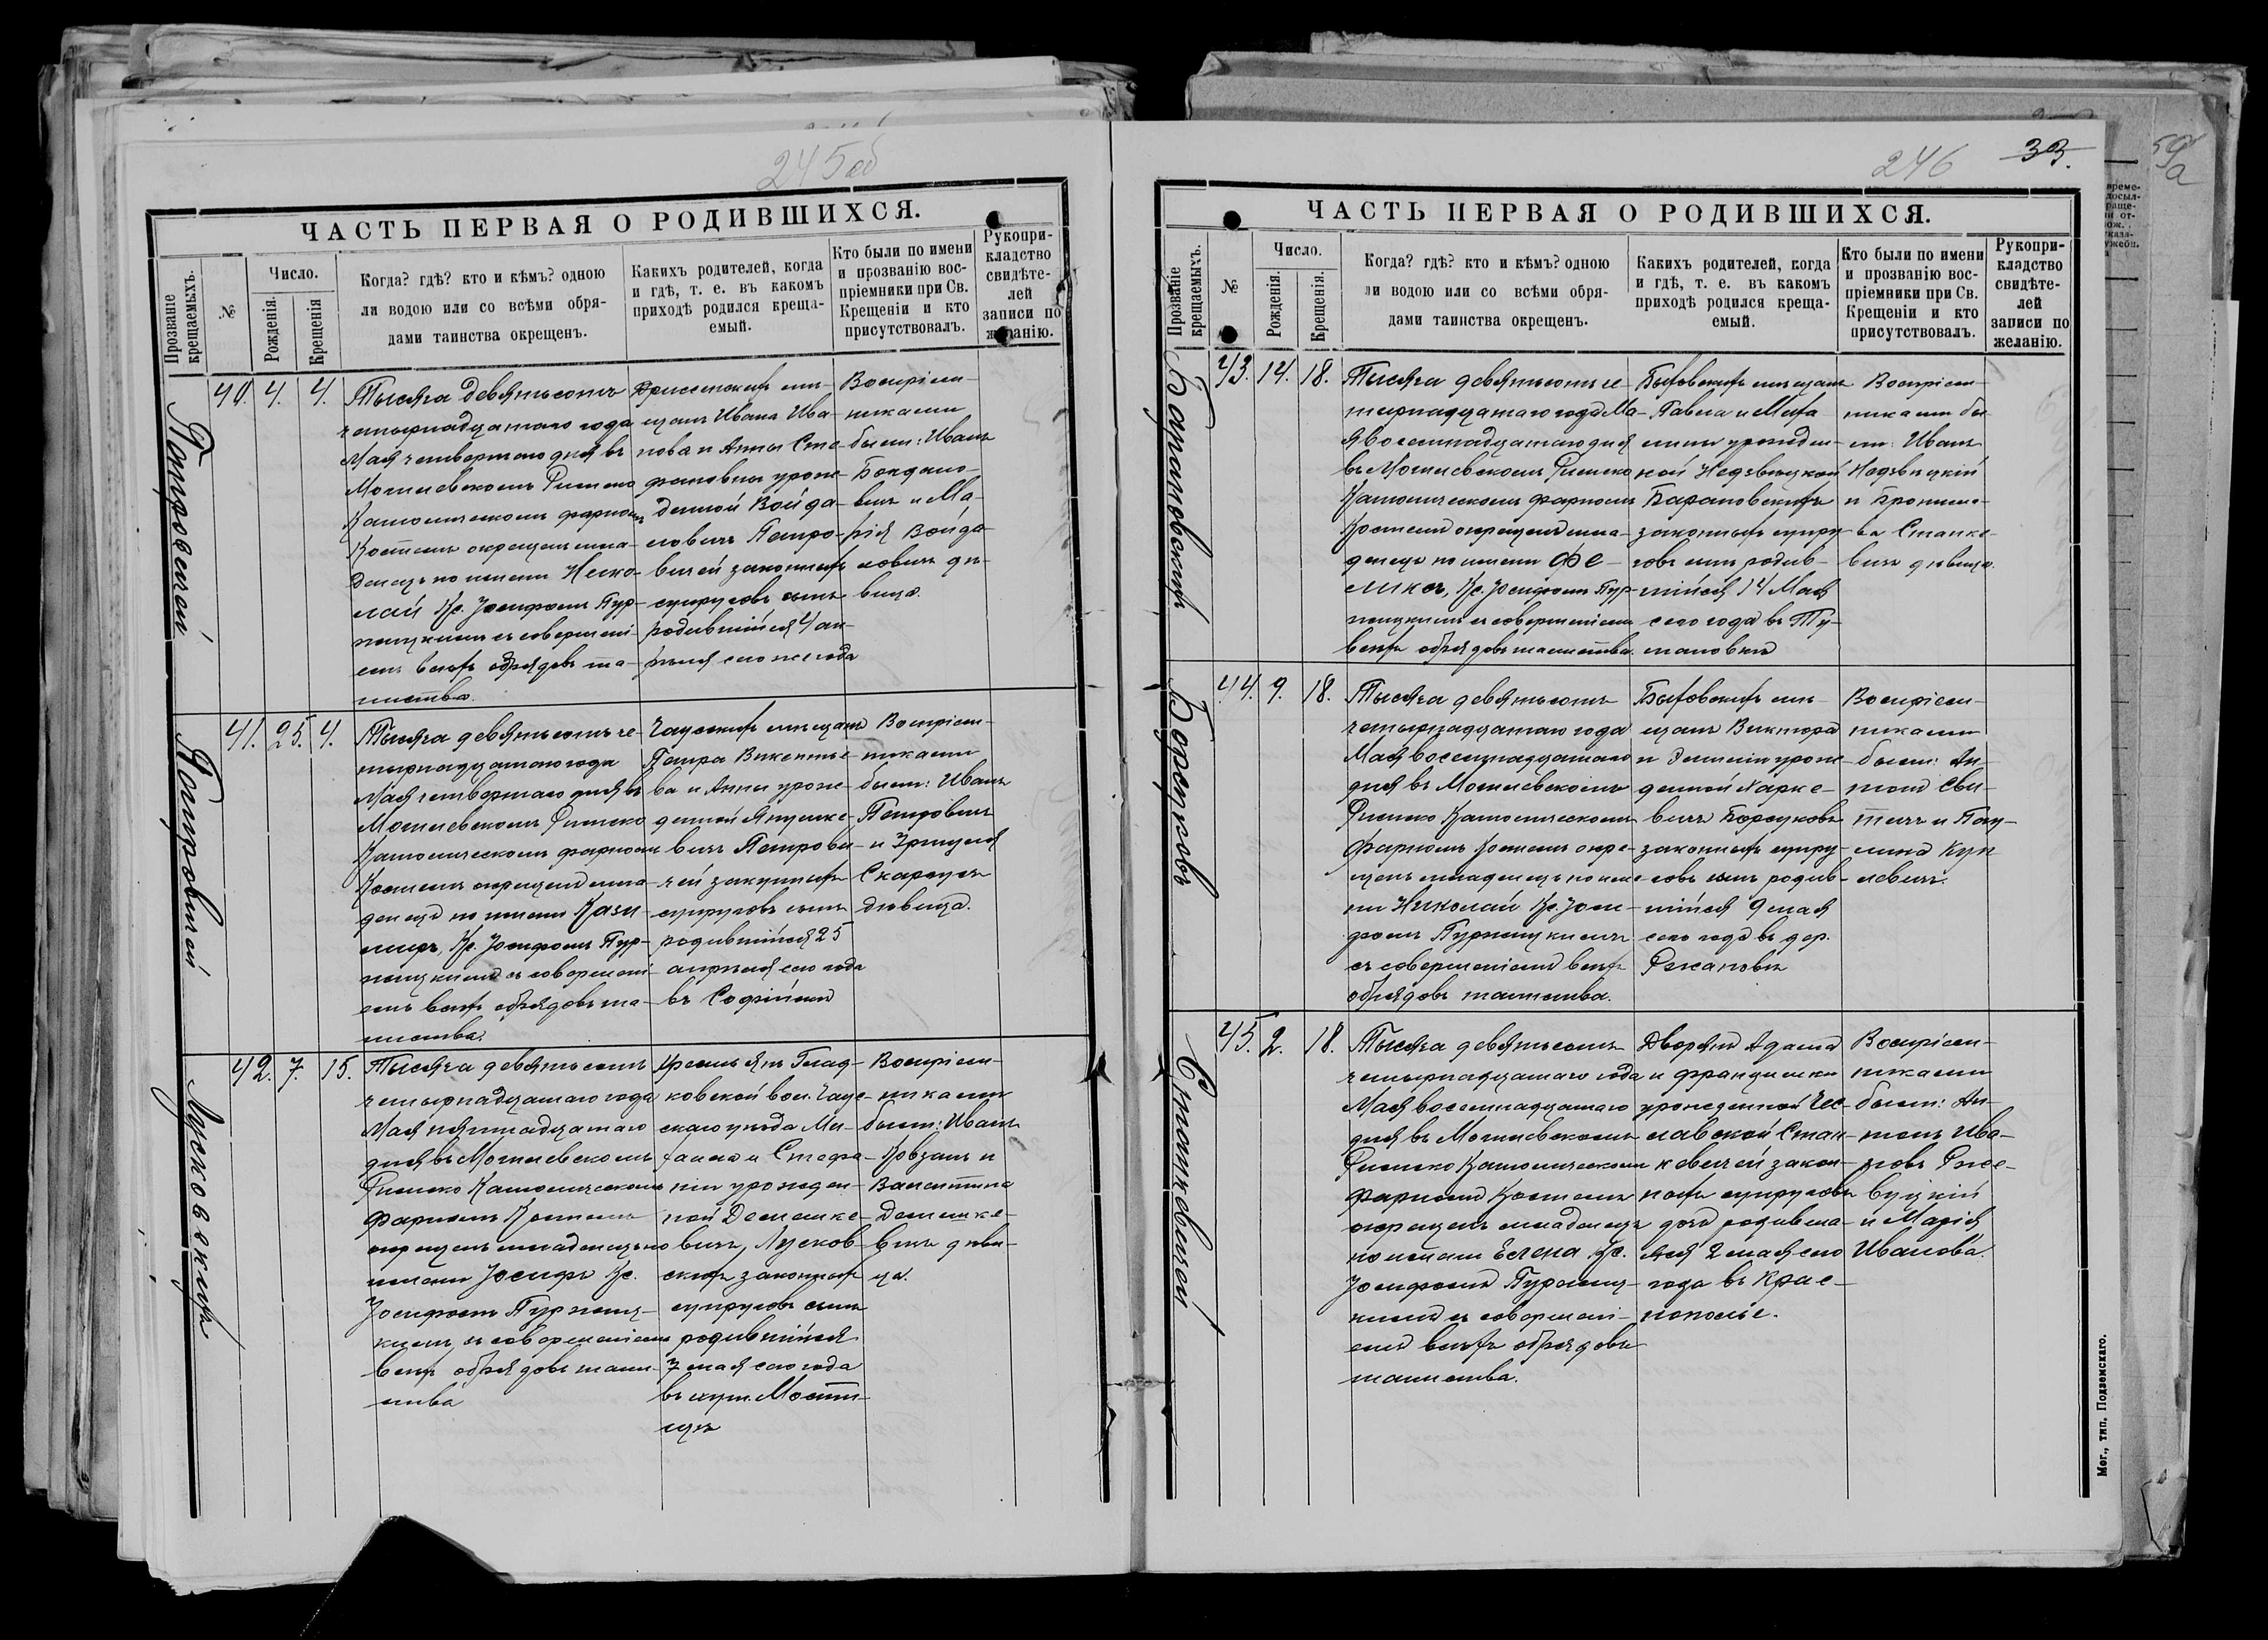 245об
ЧАСТЬ ПЕРВАЯ О РОДИВШИХСЯ.
Прозваніе крещаемыхъ.
№
Число.
Рожденія.
Крещенія
Когда? гдѣ? кто и кѣмъ? одною
ли водою или со всѣми обря-
дами таинства окрещенъ.
Какихъ родителей, когда
и гдѣ, т. е. въ какомъ
приходѣ родился креща-
емый.
Кто были по имени
и прозванію вос-
пріемники при Св.
Крещеніи и кто
присутствовалъ.
Рукопри-
кладство
свидѣте-
лей
записи по
желанію.
Петровичей
40. 4. 4.
Тысяча девятьсотъ
четырнадцатаго года
Мая четвертаго дня въ
Могилевскомъ Римско
Католическомъ фарномъ
Костелѣ окрещенъ мла-
денецъ по имени Нико-
лай Кс. Іосифомъ Пур-
с совершені-
емъ всѣхъ обрядовъ та-
инства.
щанъ Ивана Ива-
нова и Анны Сте-
фановны урож-
денной Войда-
ловичъ Петро-
вичей законныхъ
супруговъ сынъ
родившійся 4 ап-
рѣля сего же года
Воспріем-
никами
были: Иванъ
Богдано-
вичъ и Ма-
рія Войда-
ловичъ дѣ-
вица.
Петровичей
41. 25. 4.
Тысяча девятьсотъ че-
тырнадцатаго года
Мая четвертаго дня въ
Могилевскомъ Римско
Католическомъ фарномъ
Костелѣ окрещенъ мла-
денецъ по имени Кази-
миръ, Кс. Іосифомъ Пур-
съ совершені-
емъ всѣхъ обрядовъ та-
инства.
Чаусскихъ мѣщанъ
Петра Викентье-
ва и Анны урож-
денной Янушке-
вичъ Петрови-
чей законныхъ
супруговъ сынъ
родившійся 25
апрѣля сего года
въ Софійскѣ
Воспріем-
никами
были: Иванъ
Петровичъ
и
дѣвица.
Лусковскихъ
42. 7. 15.
Тысяча девятьсотъ
четырнадцатаго года
Мая пятнадцатаго
дня въ Могилевскомъ
Римско Католическомъ
Фарномъ Костелѣ
окрещенъ младенецъ по
имени Іосифъ Кс.
Іосифомъ
съ совершеніемъ
всѣхъ обрядовъ таин-
ства
Крестьянъ Глад-
ковской вол. Чаус-
скаго уѣзда Ми-
хаила и Стефа-
ніи урожден-
ной Демешке-
вичъ, Лусков-
скихъ законныхъ
супруговъ сынъ
родившійся
7 мая сего года
Воспріем-
никами
были: Иванъ
Ковзанъ и
Валентина
Демешке-
вичъ дѣви-
ца.
246
33.
ЧАСТЬ ПЕРВАЯ О РОДИВШИХСЯ.
Прозваніе крещаемыхъ.
№
Число.
Рожденія.
Крещенія.
Когда? гдѣ? кто и кѣмъ? одною
ли водою или со всѣми обря-
дами таинства окрещенъ.
Какихъ родителей, когда
и гдѣ, т. е. въ какомъ
приходѣ родился креща-
емый.
Кто были по имени
и прозванію вос-
пріемники при Св.
Крещеніи и кто
присутствовалъ.
Рукопри-
кладство
свидѣте-
лей
записи по
желанію.
Барановскихъ
43. 14. 18.
Тысяча девятьсотъ че-
тырнадцатаго года Ма-
я восемнадцатаго дня
въ Могилевскомъ Римско
Католическомъ фарномъ
Костелѣ окрещенъ мла-
денецъ по имени Фе-
ликсъ, Кс. Іосифомъ Пур-
съ совершеніемъ
всѣхъ обрядовъ таинства.
Быховскихъ мѣщанъ
Павла и
урожден-
ной Недзвецкой
Барановскихъ
законныхъ супру-
говъ сынъ родив-
шійся 14 Мая
сего года въ Ту-
мановкѣ
Воспріем-
никами бы-
ли: Иванъ
Недзвецкій
и Бронисла-
ва Станке-
вичъ дѣвица.
Борсуковъ
44. 9. 18.
Тысяча девятьсотъ
четырнадцатаго года
Мая восемнадцатаго
дня въ Могилевскомъ
Римско Католическомъ
Фарномъ Костелѣ окре-
щенъ младенецъ по име-
ни Николай Кс. Іоси-
фомъ
съ совершеніемъ всѣхъ
обрядовъ таинства.
Быховскихъ мѣ-
щанъ Виктора
и урож-
денной Харке-
вичъ Борсуковъ
законныхъ супру-
говъ сынъ родив-
шійся 9 мая
сего года въ дер.
Ржановкѣ
Воспріем-
никами
были: Ан-
тонъ
и Пау-
лина
Станкевичей
45. 2. 18.
Тысяча девятьсотъ
четырнадцатаго года
Мая восемнадцатаго
дня въ Могилевскомъ
Римско Католическомъ
Фарномъ Костелѣ
окрещенъ младенецъ
по имени Елена Кс.
Іосифомъ
съ совершені-
емъ всѣхъ обрядовъ
таинства.
Дворянъ Адама
и Францишки
урожденной Чес-
лавской Стан-
кевичей закон-
ныхъ супруговъ
дочь родивша-
яся 2 мая сего
года въ Крас-
нополье.
Воспріем-
никами
были: Ан-
тонъ Ива-
новъ Рже-
вуцкій
и Марія
Иванова.
Мог., тип. Подземскаго.